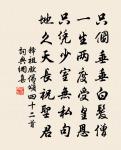 只個垂垂白髮僧
一生兩度受皇恩
只凭少室無私句
地久天長祝聖君
釋祖欽偈頌四十二首
詞典網集